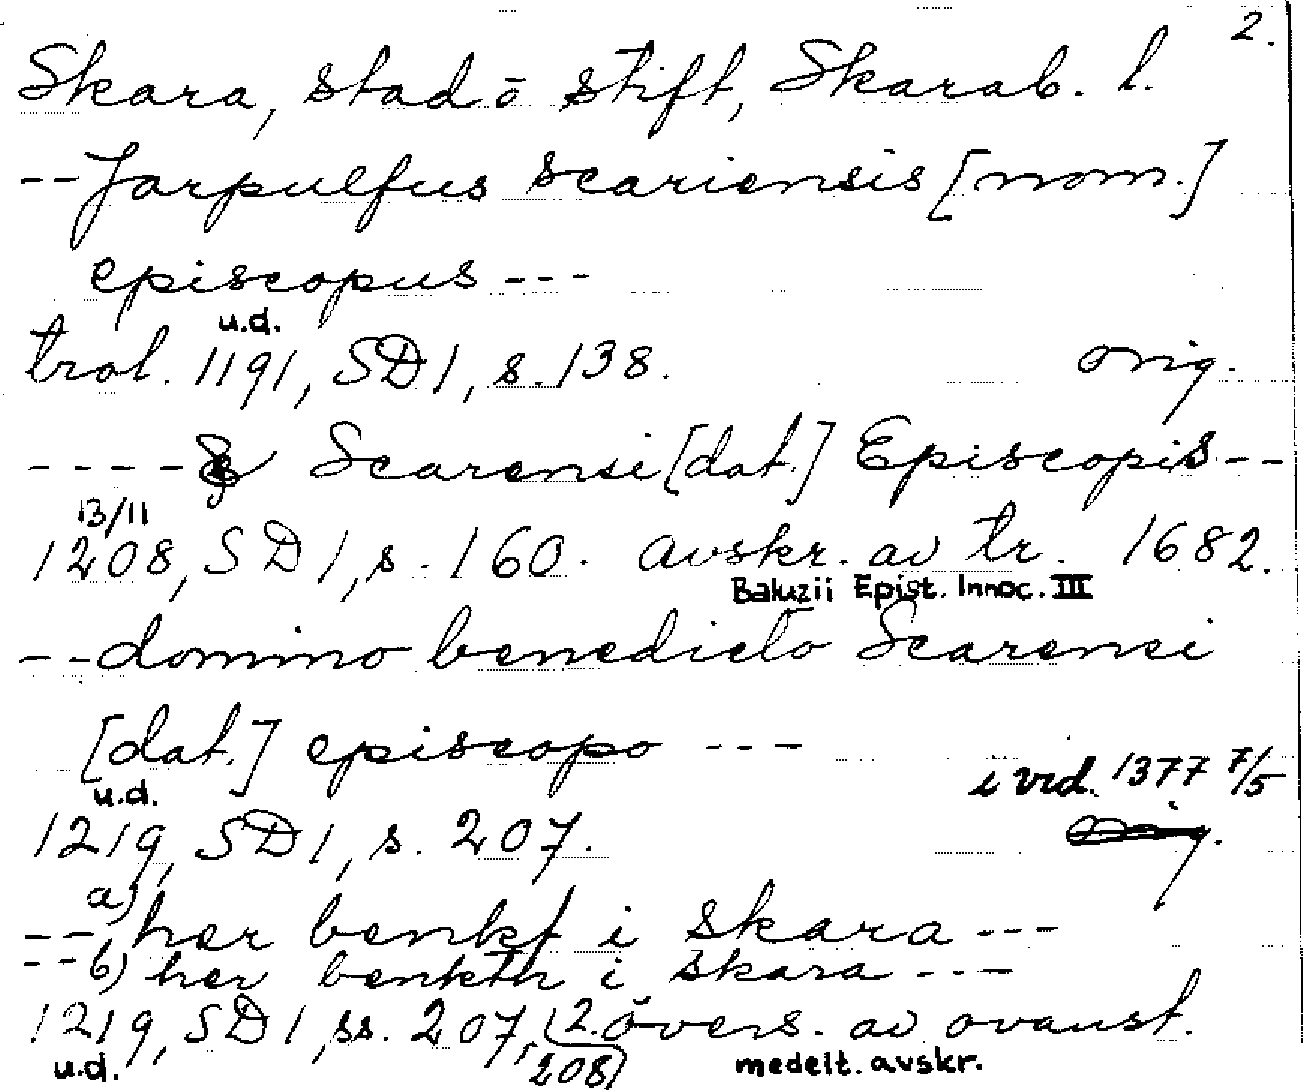 2.
Skara, stad o stift, Skarab. l.
-- Jarpulfus Scariensis [nom.]
episcopus ---
u.d.
trol. 1191, SD 1, s. 138. orig.
---- & Scarensi [dat.] Episcopis --
13/11
1208, SD 1, s. 160. avskr. av tr. 1682.
Baluzii Epist. Innoc. III
-- domino benedicto Scarensi
[dat.] episcopo ---
i vid. 1377 7/5
u.d.
1219, SD 1, s. 207. orig.
-- a) her benkt i Skara ---
-- b) her benktn i skara ---
1219, SD 1, ss. 207, (2. övers. av ovanst.
u.d. 208) medelt. avskr.